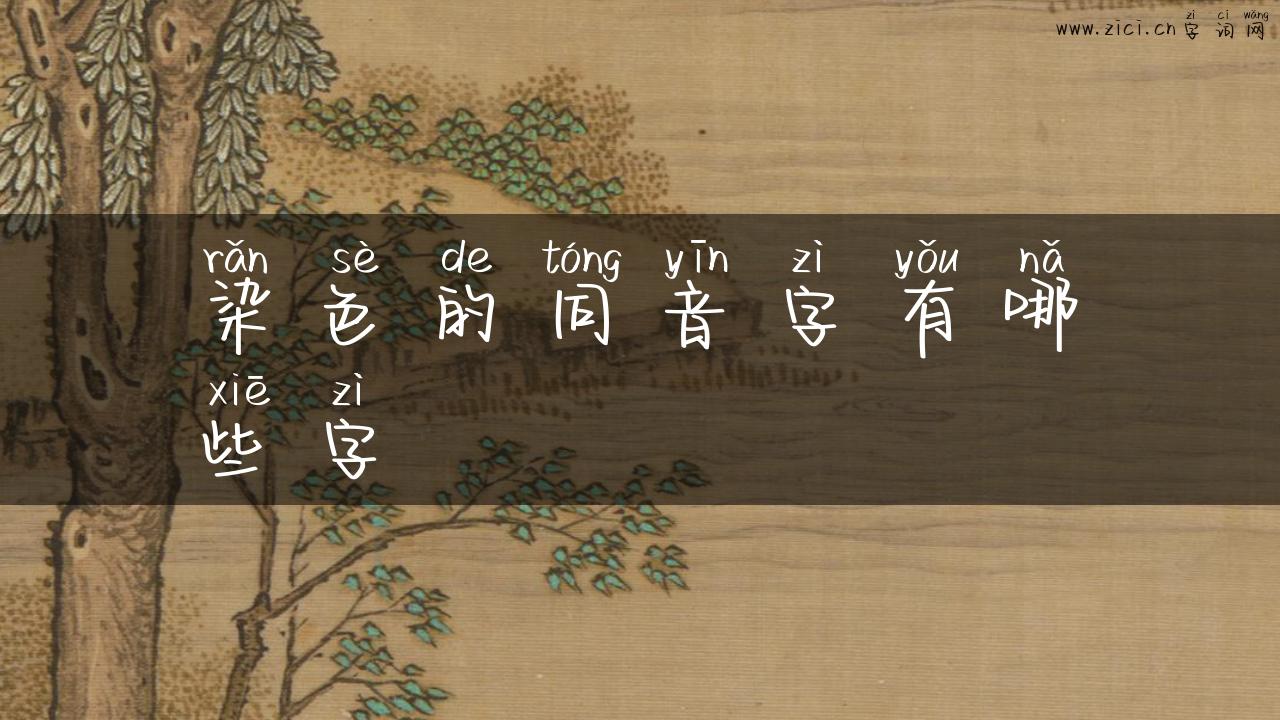 zì cí wǎng
www.zici.cn 字词网
rǎn sè de tóng yīn zì yǒu nǎ
染色的同音字有哪
xiē zì
些字